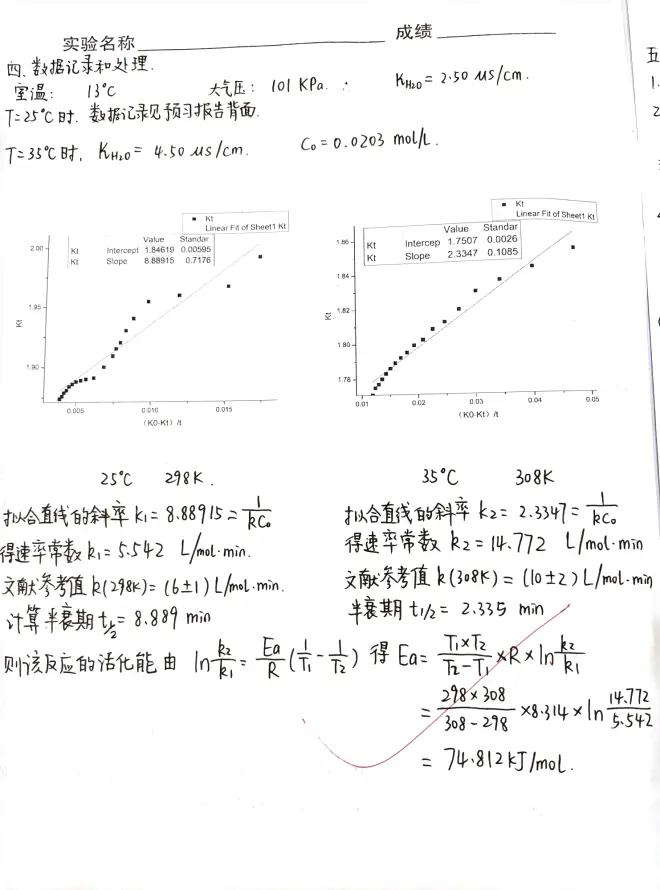 实验名称 成绩
四、数据记录和处理.
室温: 13°C 大气压: 101 KPa. K_H₂O = 2.50 μs/cm.
T=25°C时. 数据记录见预习报告背面.
T=35°C时, K_H₂O = 4.50 μs/cm. C₀=0.0203 mol/L.
Kt
Linear Fit of Sheet1 Kt
Value Standar
Kt Intercept 1.84619 0.00595
Kt Slope 8.88915 0.7176
2.00
1.95
1.90
Kt
0.005 0.010 0.015
(K0-Kt) /t
Kt
Linear Fit of Sheet1 Kt
Value Standar
Kt Intercep 1.7507 0.0026
Kt Slope 2.3347 0.1085
1.86
1.84
1.82
1.80
1.78
Kt
0.01 0.02 0.03 0.04 0.05
(K0-Kt) /t
25°C 298K.
拟合直线的斜率 k₁=8.88915=1/kC₀
得速率常数 k₁=5.542 L/mol·min.
文献参考值 k(298K)=(6±1) L/mol·min.
计算半衰期 t½=8.889 min
35°C 308K
拟合直线的斜率 k₂=2.3347=1/kC₀
得速率常数 k₂=14.772 L/mol·min
文献参考值 k(308K)=(10±2) L/mol·min
半衰期 t1/2=2.335 min
则该反应的活化能 由 ln k₂/k₁ = Ea/R (1/T₁ - 1/T₂) 得 Ea= T₁×T₂/T₂-T₁ ×R×ln k₂/k₁
= 298×308/308-298 ×8.314×ln 14.772/5.542
= 74.812 kJ/mol.
五
1.
2